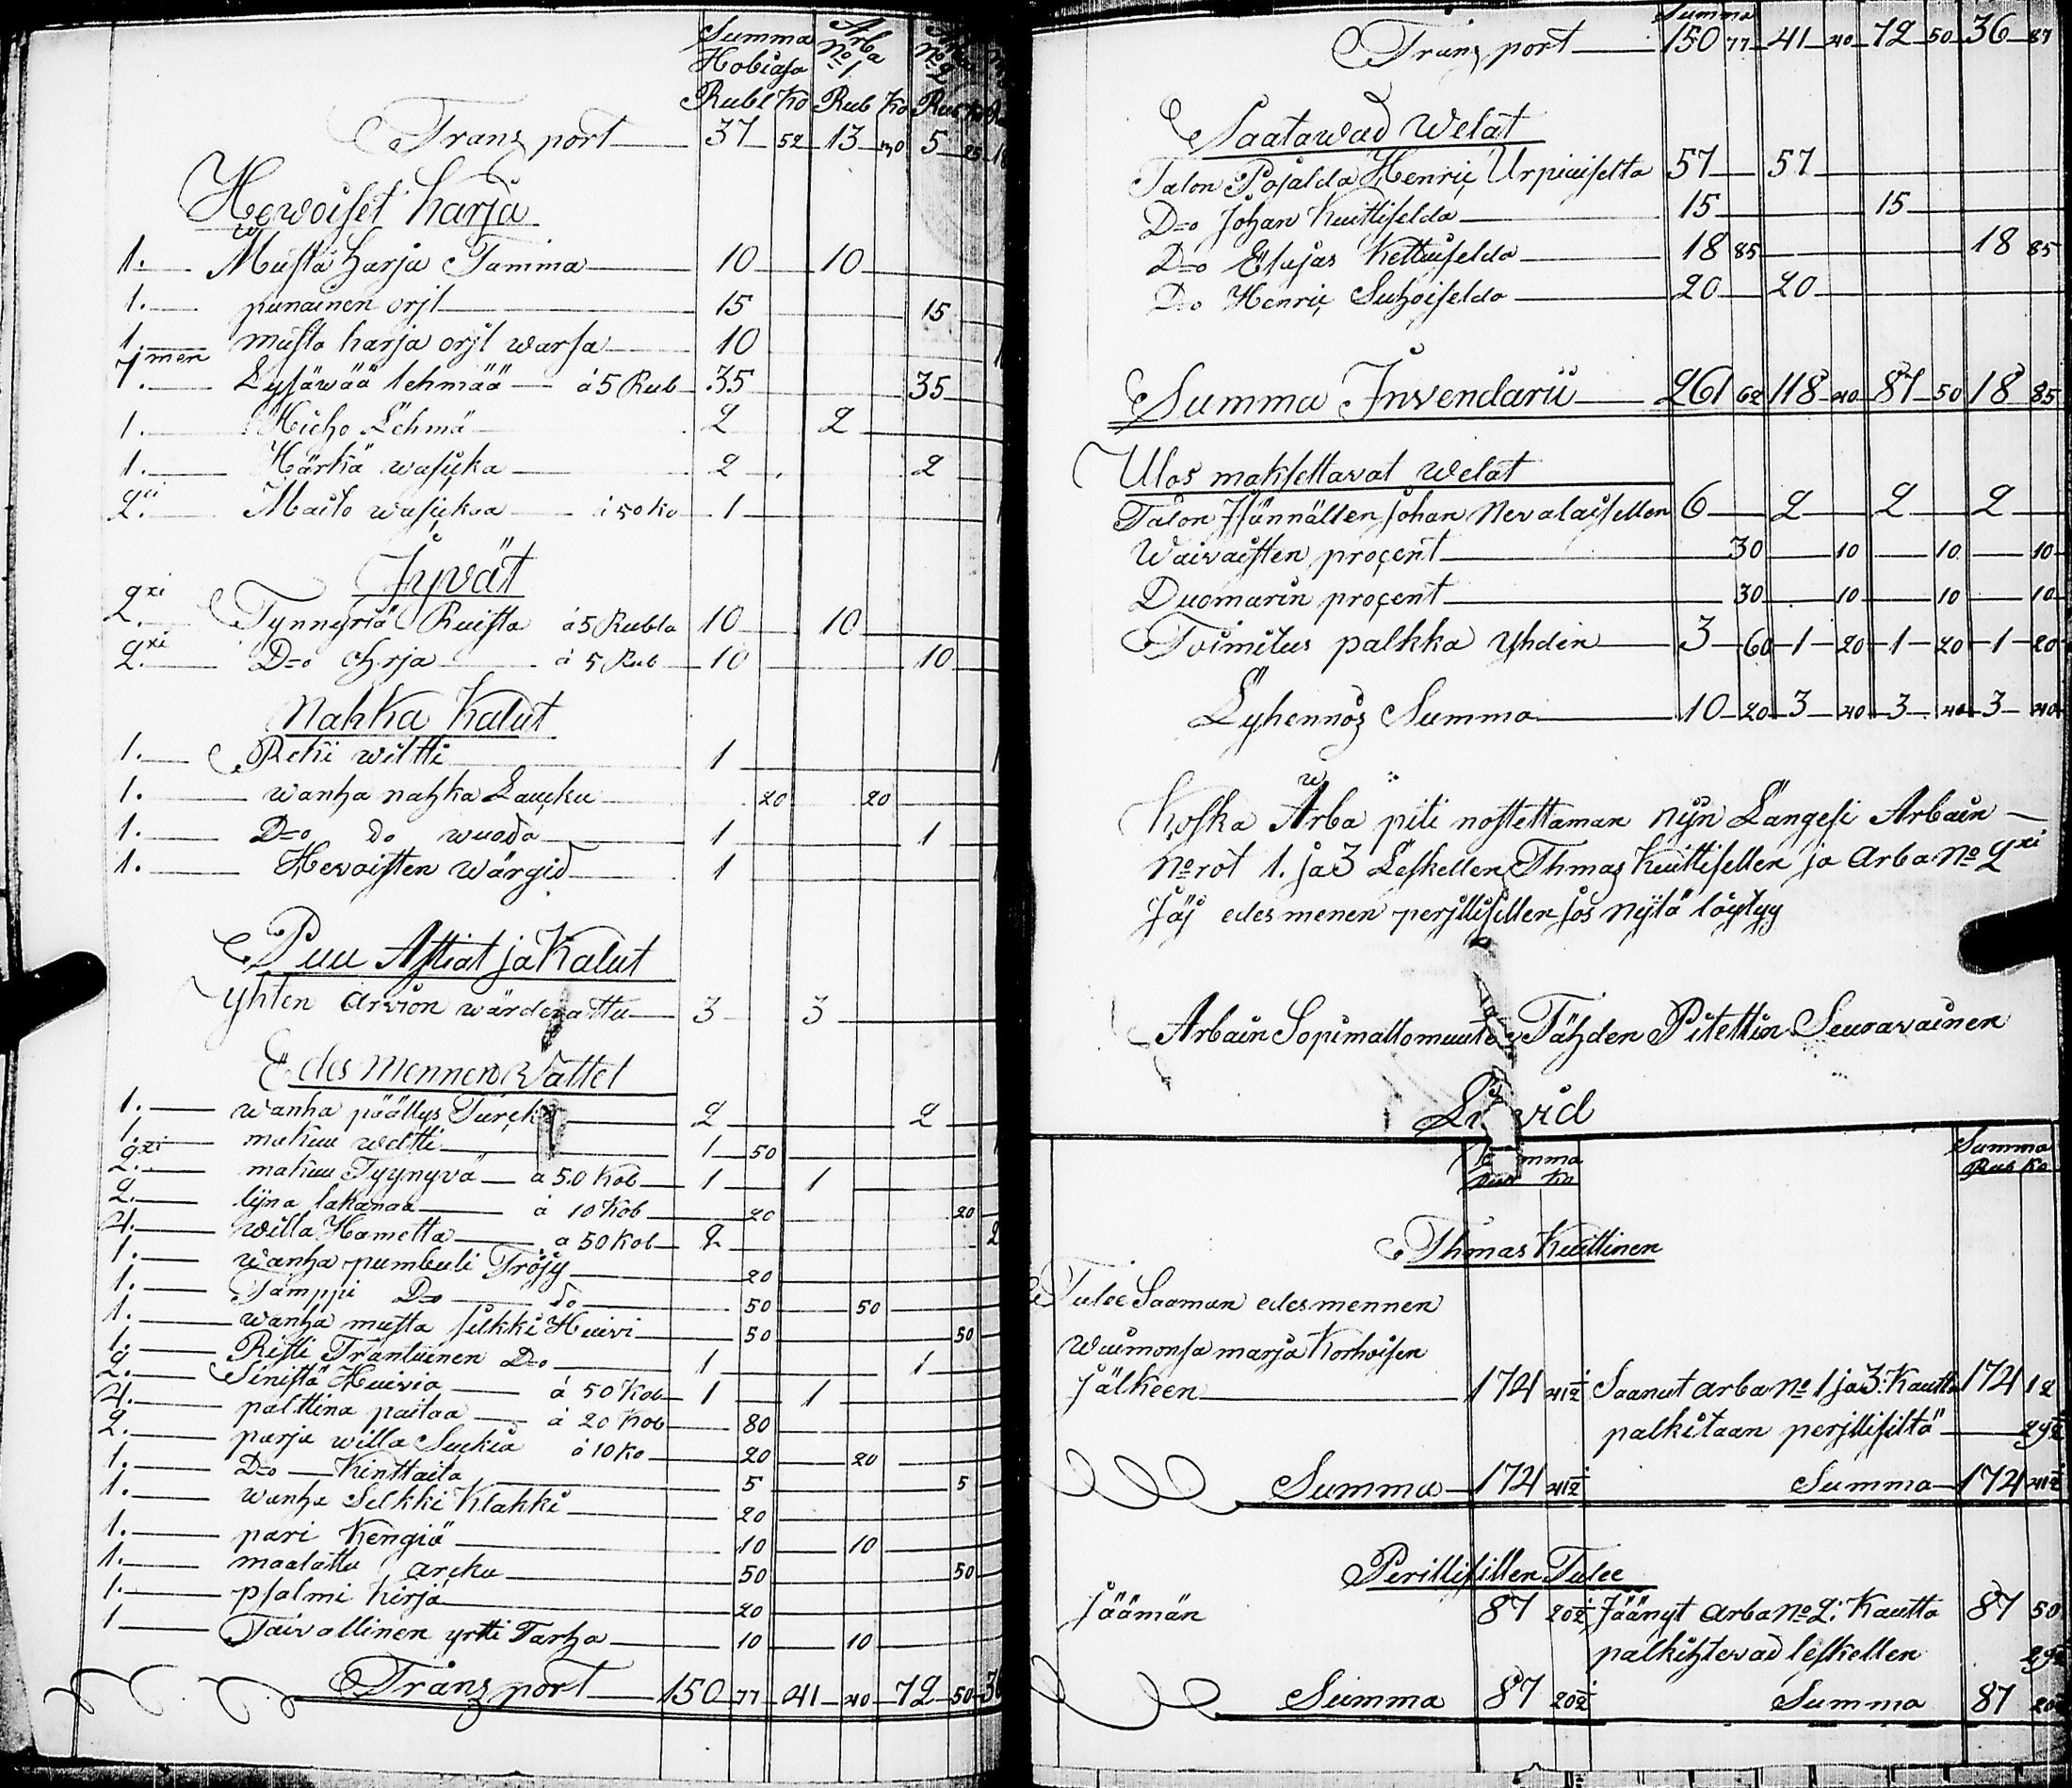 Summa Arba
Hobiasa No 1 No 2
Rubl Ko Rub Ko Rub
Transport 37 52 13 40 5 25
Hewoiset karja
1. Musta harja Tamma 10 10
1. punainen orjt 15 15
1. musta harja orjt warsa 10
7men Lysäwää lehmää á 5 Rub 35 35
1. Hieho Lehmä 2 2
1. Härkä wasicka 2 2
2xi Maito wasickaa á 50 ko 1
Jyvät
2xi Tynnyriä Ruista á 5 Rubla 10 10
2xi D=o ohrja á 5 Rub 10 10
Nahka Kalut
1. Reki wiltti 1
1. wanha nahka Laucku 20 20
1. D=o do wuoda 1 1
1. Hevoisten wärgid 1
Puu Astiat ja Kalut
yhten arvion wärderattu 3 3
Edes Mennen Wattet
1. wanha päällys Turcki 2 2
1. makuu weltti 1 50
2xi makuu Tyynyvä á 50 Kob 1 1
2. lijna lakanaa á 10 Kob 20 20
4. willa Hametta á 50 kob 2 2
1. wanha pumbuli Tröjy 20
1. Tamppi D=o do 50 50
1. wanha musta silkki Huivi 50 50
1. Risti Träntuinen D=o 1 1
2. Sinistä Huivia á 50 Kob 1 1
4. palttina paitaa á 20 Kob 80
2. parja willa Suckia á 10 Ko 20 20
1. D=o Kinttaita 5 5
1. wanha Selkki Klakki 20
1. pari Kengiä 10 10
1. maalattu arcku 50 50
1. psalmi Kirja 20
1 Taivallinen yrtti Tarha 10 10
Transport 150 77 41 40 72 50 36
Summa
Transport 150 77 41 40 72 50 36 87
Saatawad Welat
Talon Pojalda Henric Urpiaiselta 57 57
D=o Johan Kuittiselda 15 15
D=o Eliajas Kettuiselda 18 85 18 85
D=o Henric Suhoiselda 20 20
Summa Invendarii 261 62 118 40 87 50 18 85
Ulos maksettavat Welat
Talon Isännällen Johan Nevalaisellen 6 2 2 2
Waivaisten procent 30 10 10 10
Duomarin procent 30 10 10 10
Toimitus palkka yhdin 3 60 1 20 1 20 1 20
Lyhennös Summa 10 20 3 40 3 40 3 40
Koska Arba piti nostettaman nijn Langesi Arbain
No rot 1. ja 3 Leskellen Thmas Kuittisellen ja Arba No 2xi
Jäj edes menen perjllisillen jos nijtä löytyy
Arbain Sopimattomuuten Tähden Pitettin Seuravainen
Summa
Rub Ko
Thmas Kuittinen
Tulee Saaman edesmennen
Waimonsa marja Korhoisen
Jälkeen 174 41½ Saanut arba No 1 ja 3: Kautta 174 12
palkitaan perjllisiltä 29½
Summa 174 41½ Summa 174 41½
Perillisillen Tulee
Jäämän 87 20½ Jäänyt arba No 2: Kautta 87 50
palkihtevad leskellen 29½
Summa 87 20½ Summa 87 20